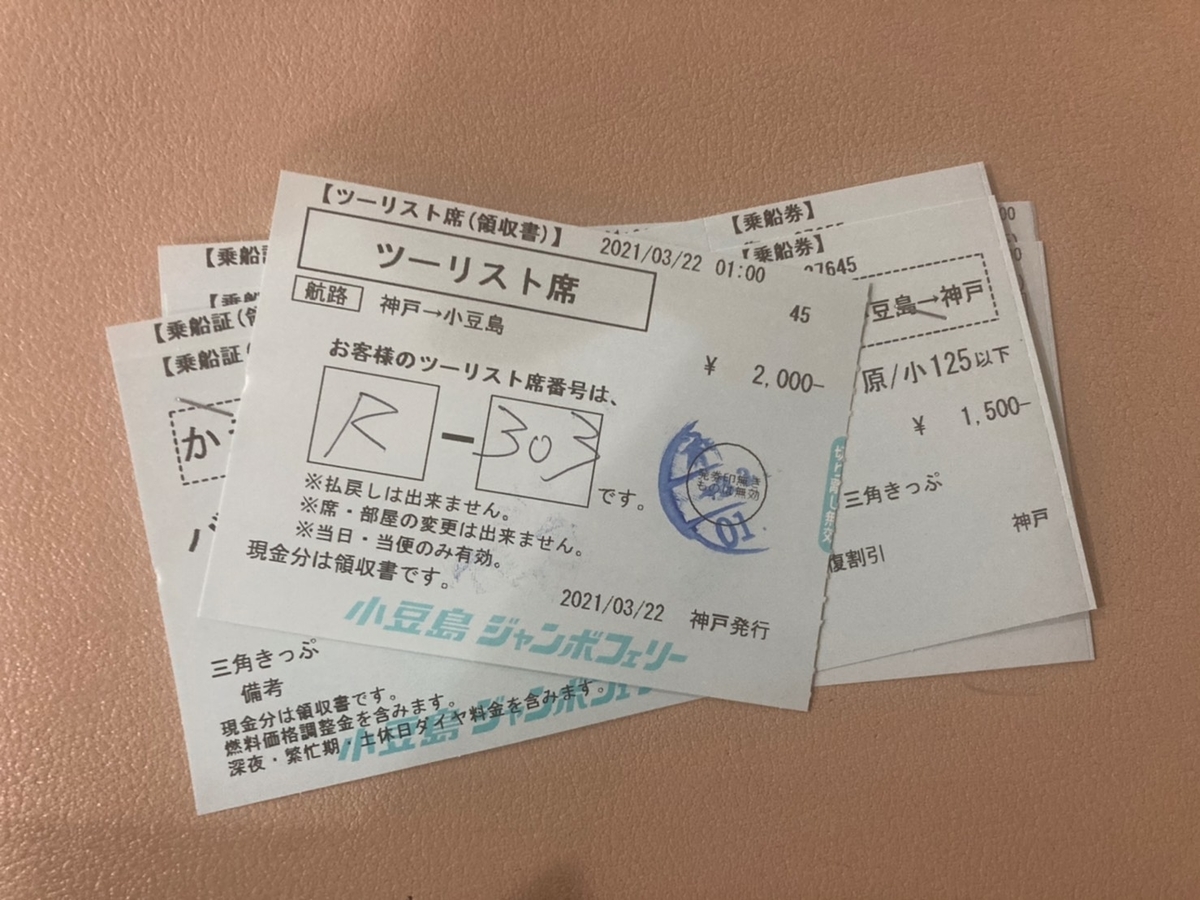 【ツーリスト席(領収書)】
2021/03/22 01:00
ツーリスト席
45
航路 神戸→小豆島
¥ 2,000-
お客様のツーリスト席番号は、
R-303です。
※払戻しは出来ません。
※席・部屋の変更は出来ません。
※当日・当便のみ有効。
現金分は領収書です。
発券印無き
ものは無効
01
2021/03/22 神戸発行
小豆島 ジャンボフェリー
【乗船券】
【乗船券】
27645
豆島→神戸
原/小125以下
¥ 1,500-
三角きっぷ
神戸
復割引
【乗船証
【乗船証(
【乗船証(
か
三角きっぷ
備考
現金分は領収書です。
燃料価格調整金を含みます。
深夜・繁忙期・土休日ダイヤ料金を含みます。
小豆島 ジャンボフェリ